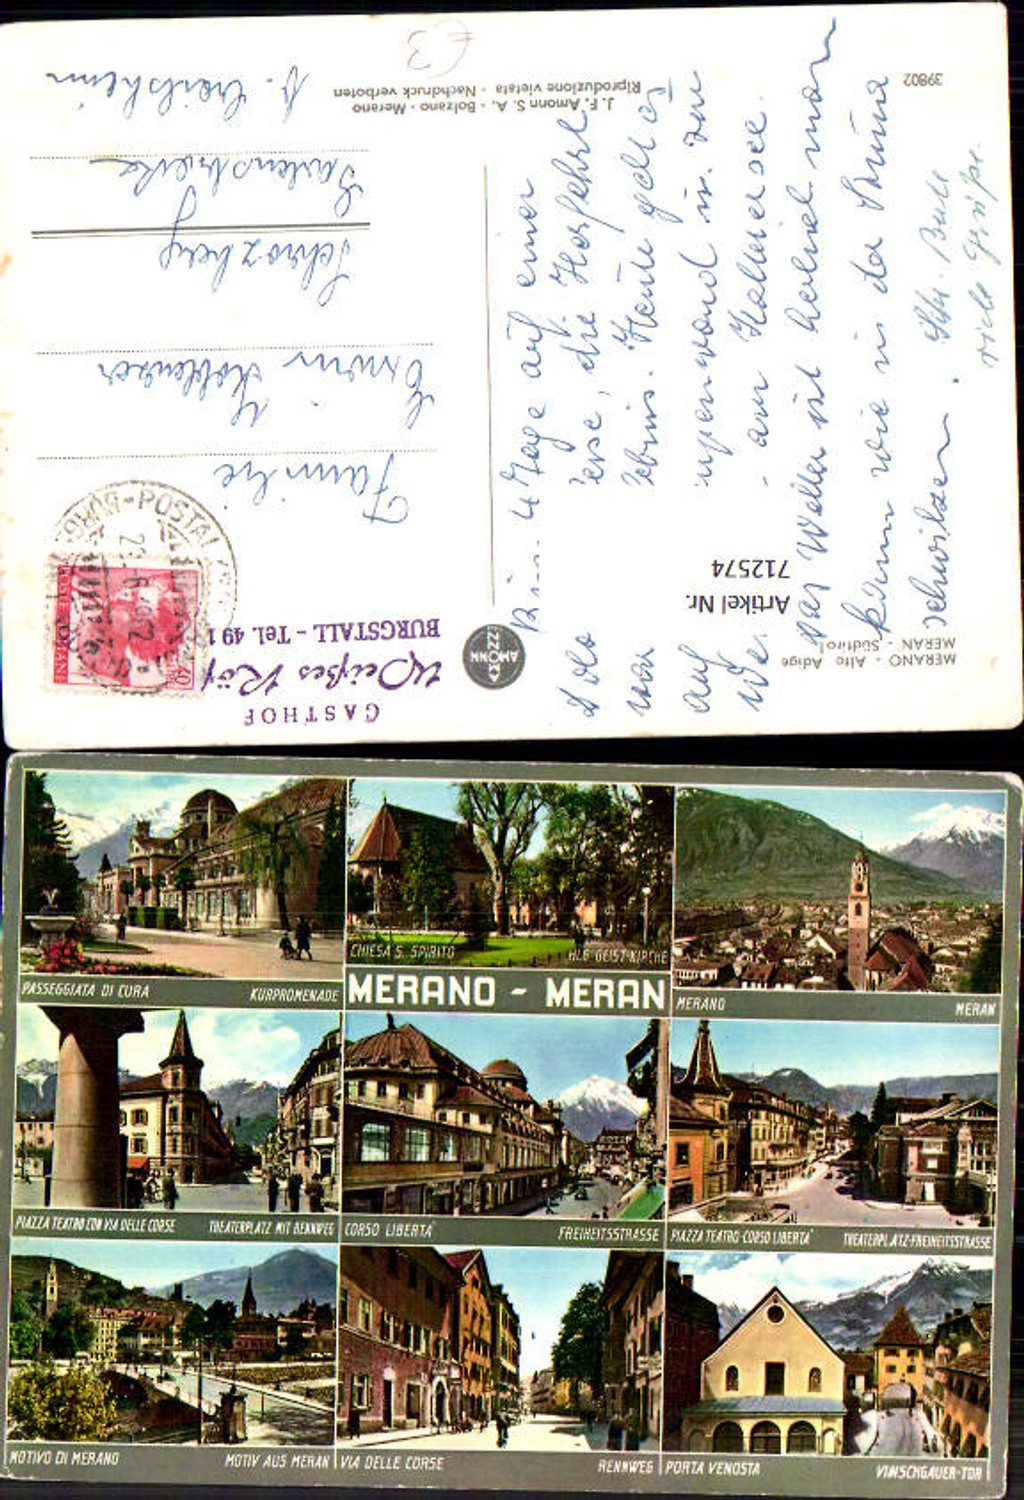 J. F. Amonn S. A. - Bolzano - Merano
Riproduzione vietata - Nachdruck verboten
39802
£3
GASTHOF
Weißes
BURGSTALL - Tel. 49 1
BURG - POSTAL
POSTE ITALIANE
AMONN
Familie
Erwin
Schrozberg
Gartenstraße
b. Crailsheim
Bin 4 Tage auf einer
die Herfahrt
war Heute geht es
auf
am Kalterer See.
Das Wetter ist herrlich man
kann wie in der Sauna
schwitzen.
viele Grüße.
Artikel Nr.
712574
MERANO - Alto Adige
MERAN - Südtirol
PASSEGGIATA DI CURA KURPROMENADE
CHIESA S. SPIRITO HLG. GEIST-KIRCHE
MERANO - MERAN
MERANO MERAN
PIAZZA TEATRO CON VIA DELLE CORSE THEATERPLATZ MIT RENNWEG
CORSO LIBERTA' FREIHEITSSTRASSE
PIAZZA TEATRO-CORSO LIBERTA' THEATERPLATZ-FREIHEITSSTRASSE
MOTIVO DI MERANO MOTIV AUS MERAN
VIA DELLE CORSE RENNWEG
PORTA VENOSTA VINSCHGAUER-TOR